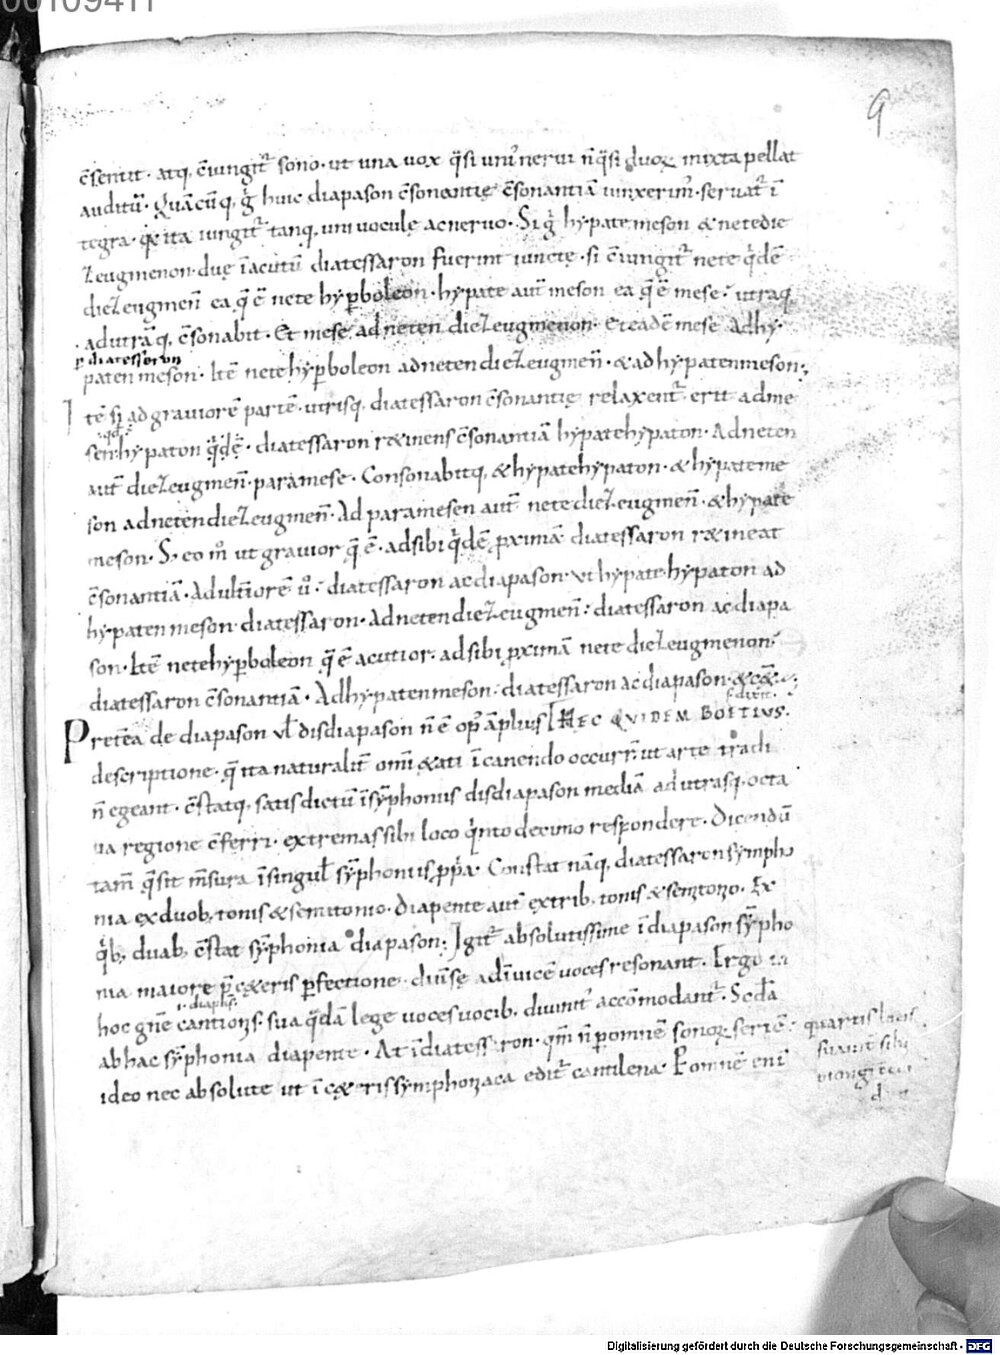 9
c̄sentit · atq, c̄iungit̄ sono · ut una uox q̄si uni᾽ nerui n̄ q̄si duoꝝ mixta pellat
auditū · Quācūq, ḡ huic diapason c̄sonantię c̄sonantiā iunxerim᾽ · seruat̄ ī
tegra · ita iungit̄ tanq, uni uoculę ac neruo · Si ḡ hypate meson & nete die
zeugmenon · duę ī acutū diatessaron fuerint iunctę · si c̄iungit̄ nete q̄dē
diezeugmen̄ ea q̄ ē nete hyp̄boleon · hypate aut̄ meson ea q̄ ē mese · utraq,
ad utrāq, c̄sonabit · Et mese ad neten diezeugmenon · et eadē mese ad hy
p̄ diatessaron
paten meson · Itē nete hyp̄boleon ad neten diezeugmen̄ · & ad hypaten meson;
I tē si ad grauiorē partē · utrisq, diatessaron c̄sonantię relaxent̄ · erit ad me
sen · hypaton q̄dē · diatessaron r&inens c̄sonantiā hypate hypaton · Ad neten
aut̄ diezeugmen̄ · paramese · Consonabitq, & hypate hypaton · & hypate me
son ad neten diezeugmen̄ · Ad paramesen aut̄ nete diezeugmen̄ · & hypate
meson · S; eo m̄ ut grauior q̄ ē · ad sibi q̄dē ꝓximā diatessaron r&ineat
c̄sonantiā · Ad ultiorē ū · diatessaron ac diapason · ut hypate hypaton ad
hypaten meson diatessaron · Ad neten diezeugmen̄ : diatessaron ac diapa
son · Itē nete hyp̄boleon q̄ ē acutior · ad sibi ꝓximā nete diezeugmenon ·
diatessaron c̄sonantiā · Ad hypaten meson · diatessaron ac diapason ·
Pretēa de diapason ul̄ disdiapason n̄ ē op᾽ āplius HEC QVIDEM BOETIVS.
descriptione · q̄ ita naturalit̄ om̄i &ati ī canendo occurr̄ · ut arte tradi
n̄ egeant · c̄statq, satis dictū ī sȳphoniis disdiapason mediā ad utrasq, octa
ua regione c̄ferri · extremas sibi loco q̄nto decimo respondere · Dicendū
tam̄ q̄ sit m̄sura ī singul̄ sȳphoniis ꝓp̄a · Constat nāq, diatessaron sympho
nia ex duob, tonis & semitonio · Diapente aut̄ ex trib, tonis & semitono · Ex
q̄b, duab, c̄stat sȳphonia diapason; Igit̄ absolutissime ī diapason sȳpho
nia maiore p̄ c&eris p̄fectione · diuersę ad īuicē uoces resonant · Ergo in
i · diaphis᾽
hoc gn̄e cantionis · sua q̄dā lege uoces uocib, diuinit᾽ accōmodant̄ · Scd̄a
ab hac sȳphonia diapente · At ī diatessaron · qm̄ n̄ p omnē sonoꝝ seriē · quartis locis
suauit sibi
ideo nec absolute ut ī c&eris symphoniaca edit̄ cantilena · P omnē eni